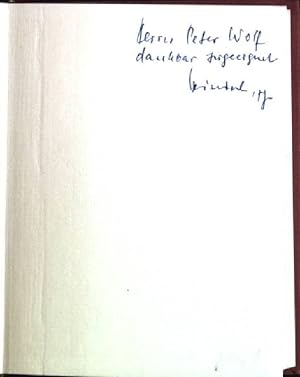 Herrn Peter Wolf
dankbar zugeeignet